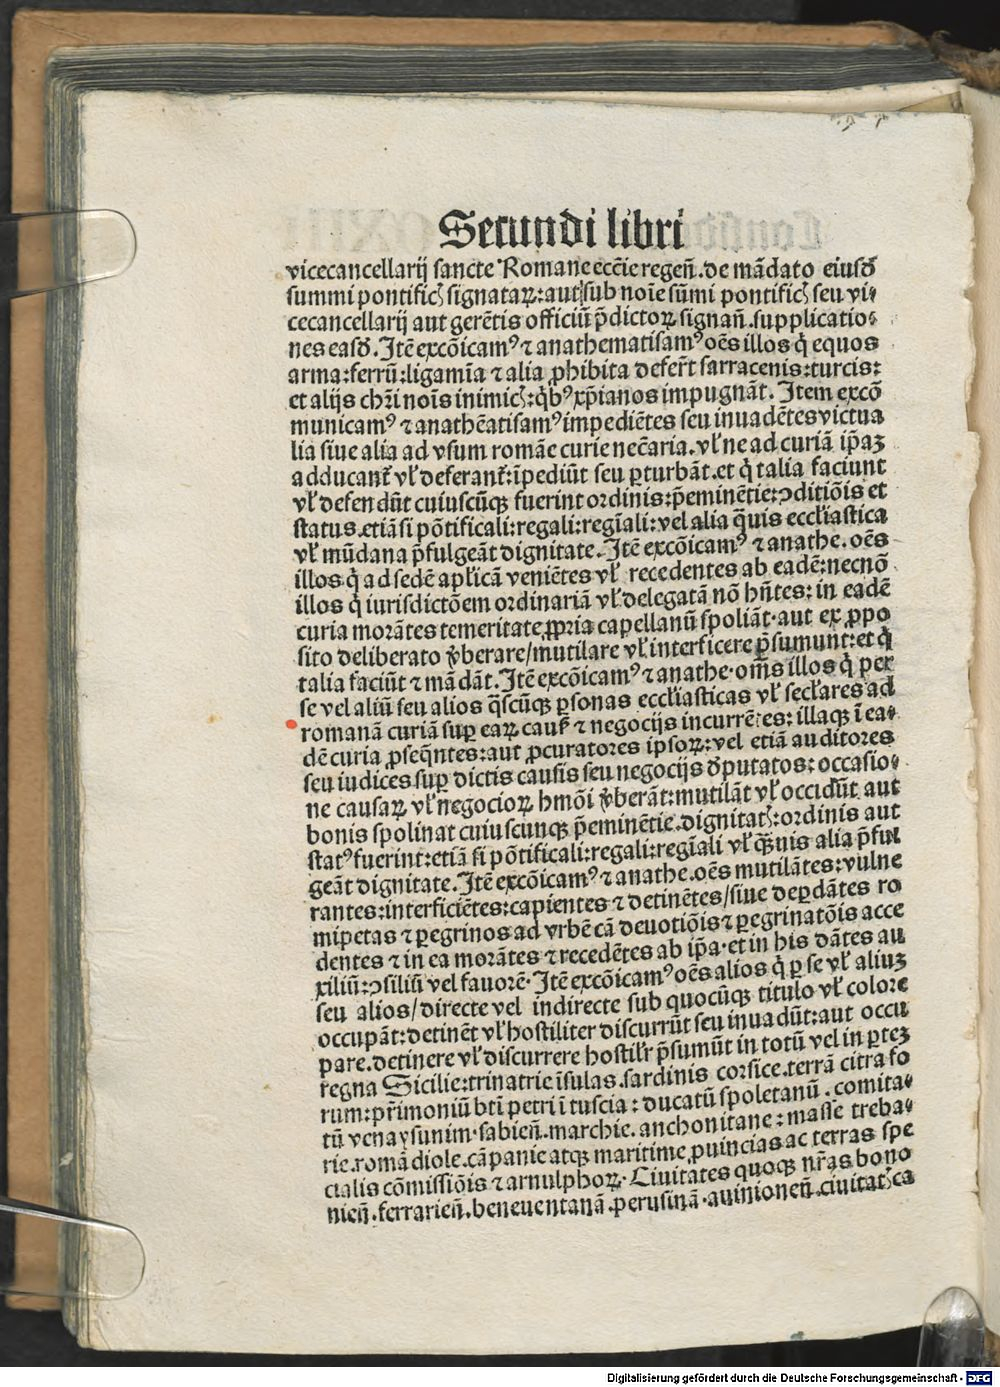 Secundi libri
vicecancellarij sancte Romane eccĩe regeñ. de mãdato eiusđ
summi pontificꝭ signataꝝ: aut sub noĩe sũmi pontificꝭ seu vi⸗
cecancellarij aut gerẽtis officiũ p̃dictoꝝ signañ. supplicatio⸗
nes easđ. Itẽ excõicamꝰ ⁊ anathematisamꝰ oẽs illos q̇ equos
arma: ferrũ: ligamĩa ⁊ alia ꝓhibita defert̃ sarracenis: turcis:
et alijs chr̃i noĩs inimicꝭ: q̇bꝰ xp̃ianos impugnãt. Item excõ
municamꝰ ⁊ anathẽatisamꝰ impediẽtes seu inuadẽtes victua
lia siue alia ad vsum romãe curie nec̃aria. vł ne ad curiã ip̃aꝫ
adducant̃ vł deferant̃: ĩpediũt seu ꝑturbãt. et q̇ talia faciunt
vł defendũt cuiuscũqꝫ fuerint ordinis: p̃eminẽtie: ꝯditiõis et
status. etiã si põtificali: regali: regĩali: vel alia q̃uis eccłiastica
vł mũdana p̃fulgeãt dignitate. Itẽ excõicamꝰ ⁊ anathe. oẽs
illos q̇ ad sedẽ apłicã veniẽtes vł recedentes ab eadẽ: necnõ
illos q̇ iurisdictõem ordinariã vł delegatã nõ hñtes: in eadẽ
curia morãtes temeritate ꝓpria capellanũ spoliãt. aut ex ꝓpo
sito deliberato v̾berare/ mutilare vł interficere p̃sumunt: et q̇
talia faciũt ⁊ mãdãt. Itẽ excõicamꝰ ⁊ anathe. om̃s illos q̇ per
se vel aliũ seu alios q̃scũqꝫ ꝑsonas eccłiasticas vł secłares ad
romanã curiã suꝑ eaꝝ caus̃ ⁊ negocijs incurrẽtes: illaqꝫ ĩ ea⸗
dẽ curia ꝓseq̃ntes: aut ꝓcuratores ipsoꝝ: vel etiã auditores
seu iudices suꝑ dictis causis seu negocijs đputatos: occasio⸗
ne causaꝝ vł negocioꝝ hmõi v̾berãt: mutilãt vł occidũt aut
bonis spolinat cuiuscunqꝫ p̃eminẽtie. dignitatꝭ: ordinis aut
statꝰ fuerint: etiã si põtificali: regali: regĩali vł q̃uis alia p̃ful
geãt dignitate. Itẽ excõicamꝰ ⁊ anathe. oẽs mutilãtes: vulne
rantes: interficiẽtes: capientes ⁊ detinẽtes/ siue deꝑdãtes ro
mipetas ⁊ ꝑegrinos ad vrbẽ cã deuotiõis ⁊ ꝑegrinatõis acce
dentes ⁊ in ea morãtes ⁊ recedẽtes ab ip̃a. et in his dãtes au
xiliũ: ꝯsiliũ vel fauorẽ. Itẽ excõicamꝰ oẽs alios q̇ ꝑ se vł aliuꝫ
seu alios/ directe vel indirecte sub quocũqꝫ titulo vł colore
occupãt: detinẽt vł hostiliter discurrũt seu inuadũt: aut occu
pare. detinere vł discurrere hostilr̃ p̃sumũt in totũ vel in ꝑteꝫ
regna Sicilie: trinatrie ĩsulas. sardinis corsice. terrã citra fo
rum: pr̃imoniũ bt̃i petri ĩ tuscia: ducatũ spoletanũ. comita⸗
tũ venaysunim. sabieñ. marchie. anchonitane: masse treba⸗
rie. romãdiole. cãpanie atqꝫ maritime ꝓuincias ac terras spe
cialis cõmissiõis ⁊ arnulphoꝝ. Ciuitates quoqꝫ nr̃as bono
nieñ. ferrarieñ. beneuentanã. ꝑerusinã. auinioneñ. ciuitatꝭ ca
Digitalisierung gefördert durch die Deutsche Forschungsgemeinschaft - DFG